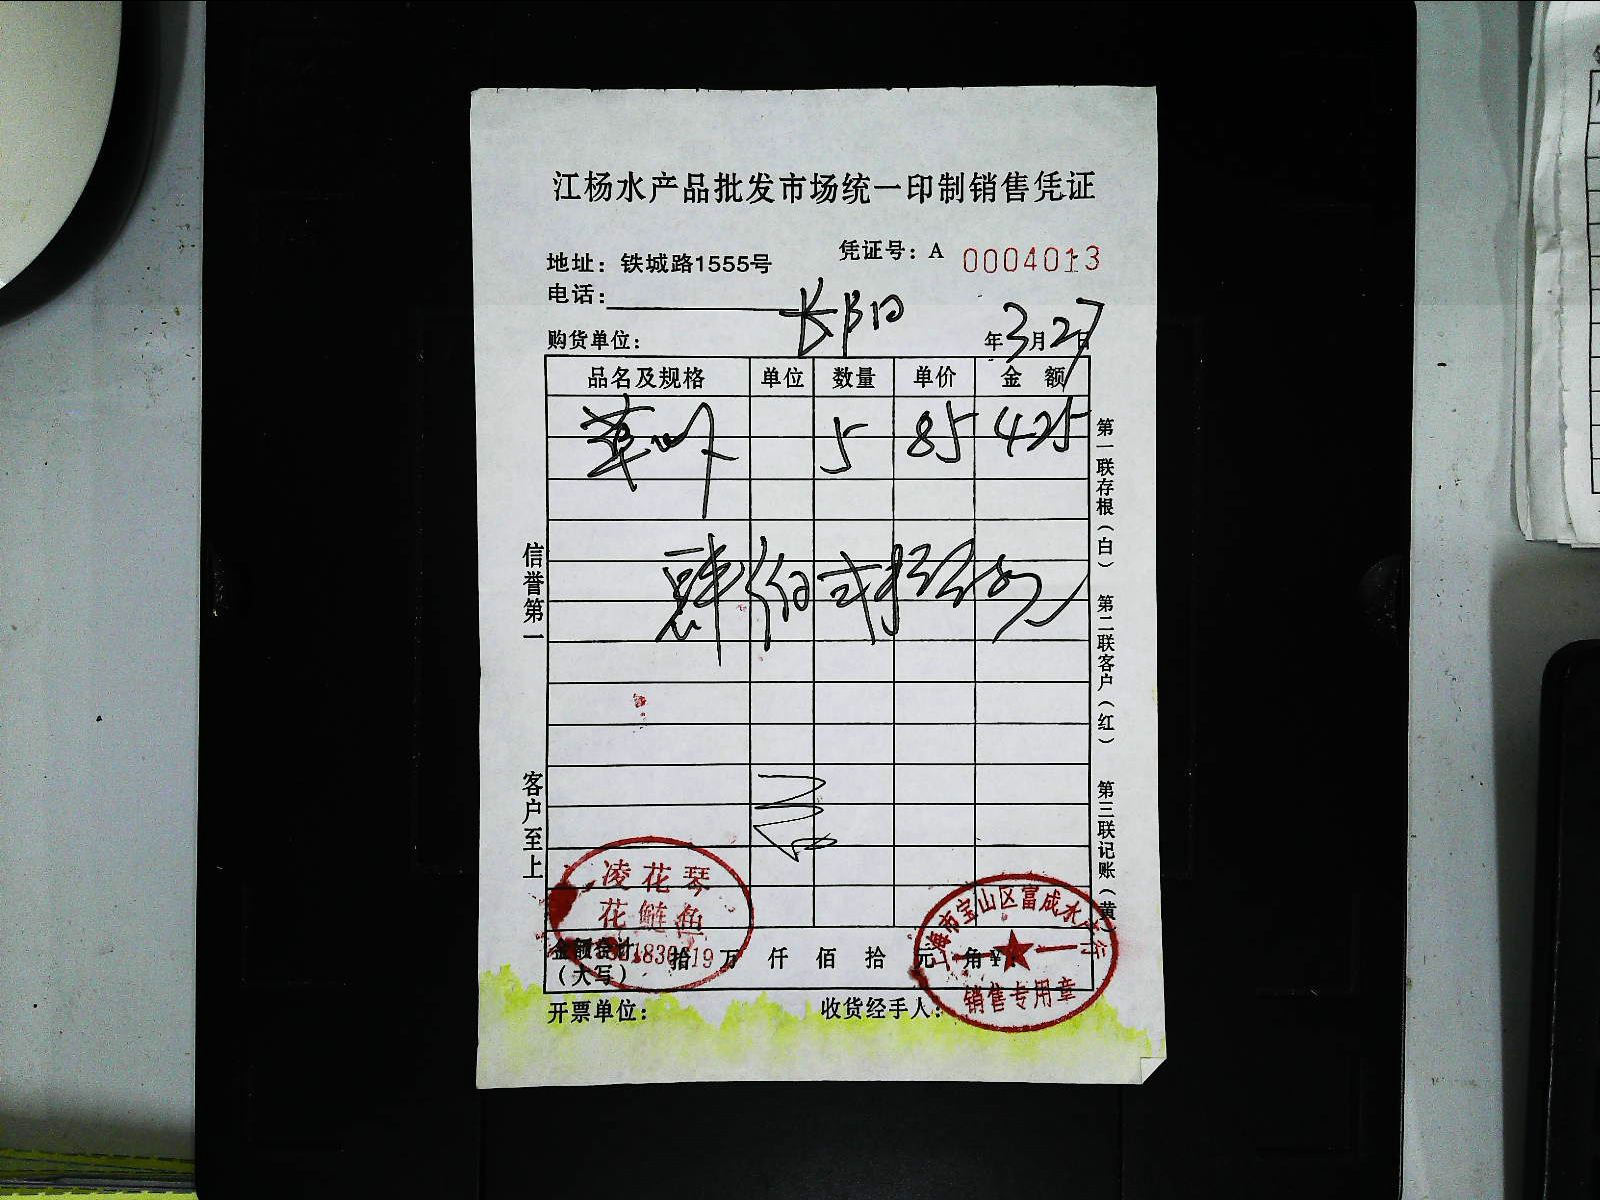 江杨水产品批发市场统一印制销售凭证
地址：铁城路1555号
凭证号：A 0004013
电话：
购货单位： 长阳
年3月27日
品名及规格 单位 数量 单价 金 额
草 5 85 425
肆佰贰拾伍元
信誉第一
客户至上
第一联存根（白）
第二联客户（红）
第三联记账（黄）
凌花琴
花鲢鱼
上海市宝山区富成水产行
销售专用章
金额合计（大写） 拾 万 仟 佰 拾 元 角 ¥：
开票单位：
收货经手人：